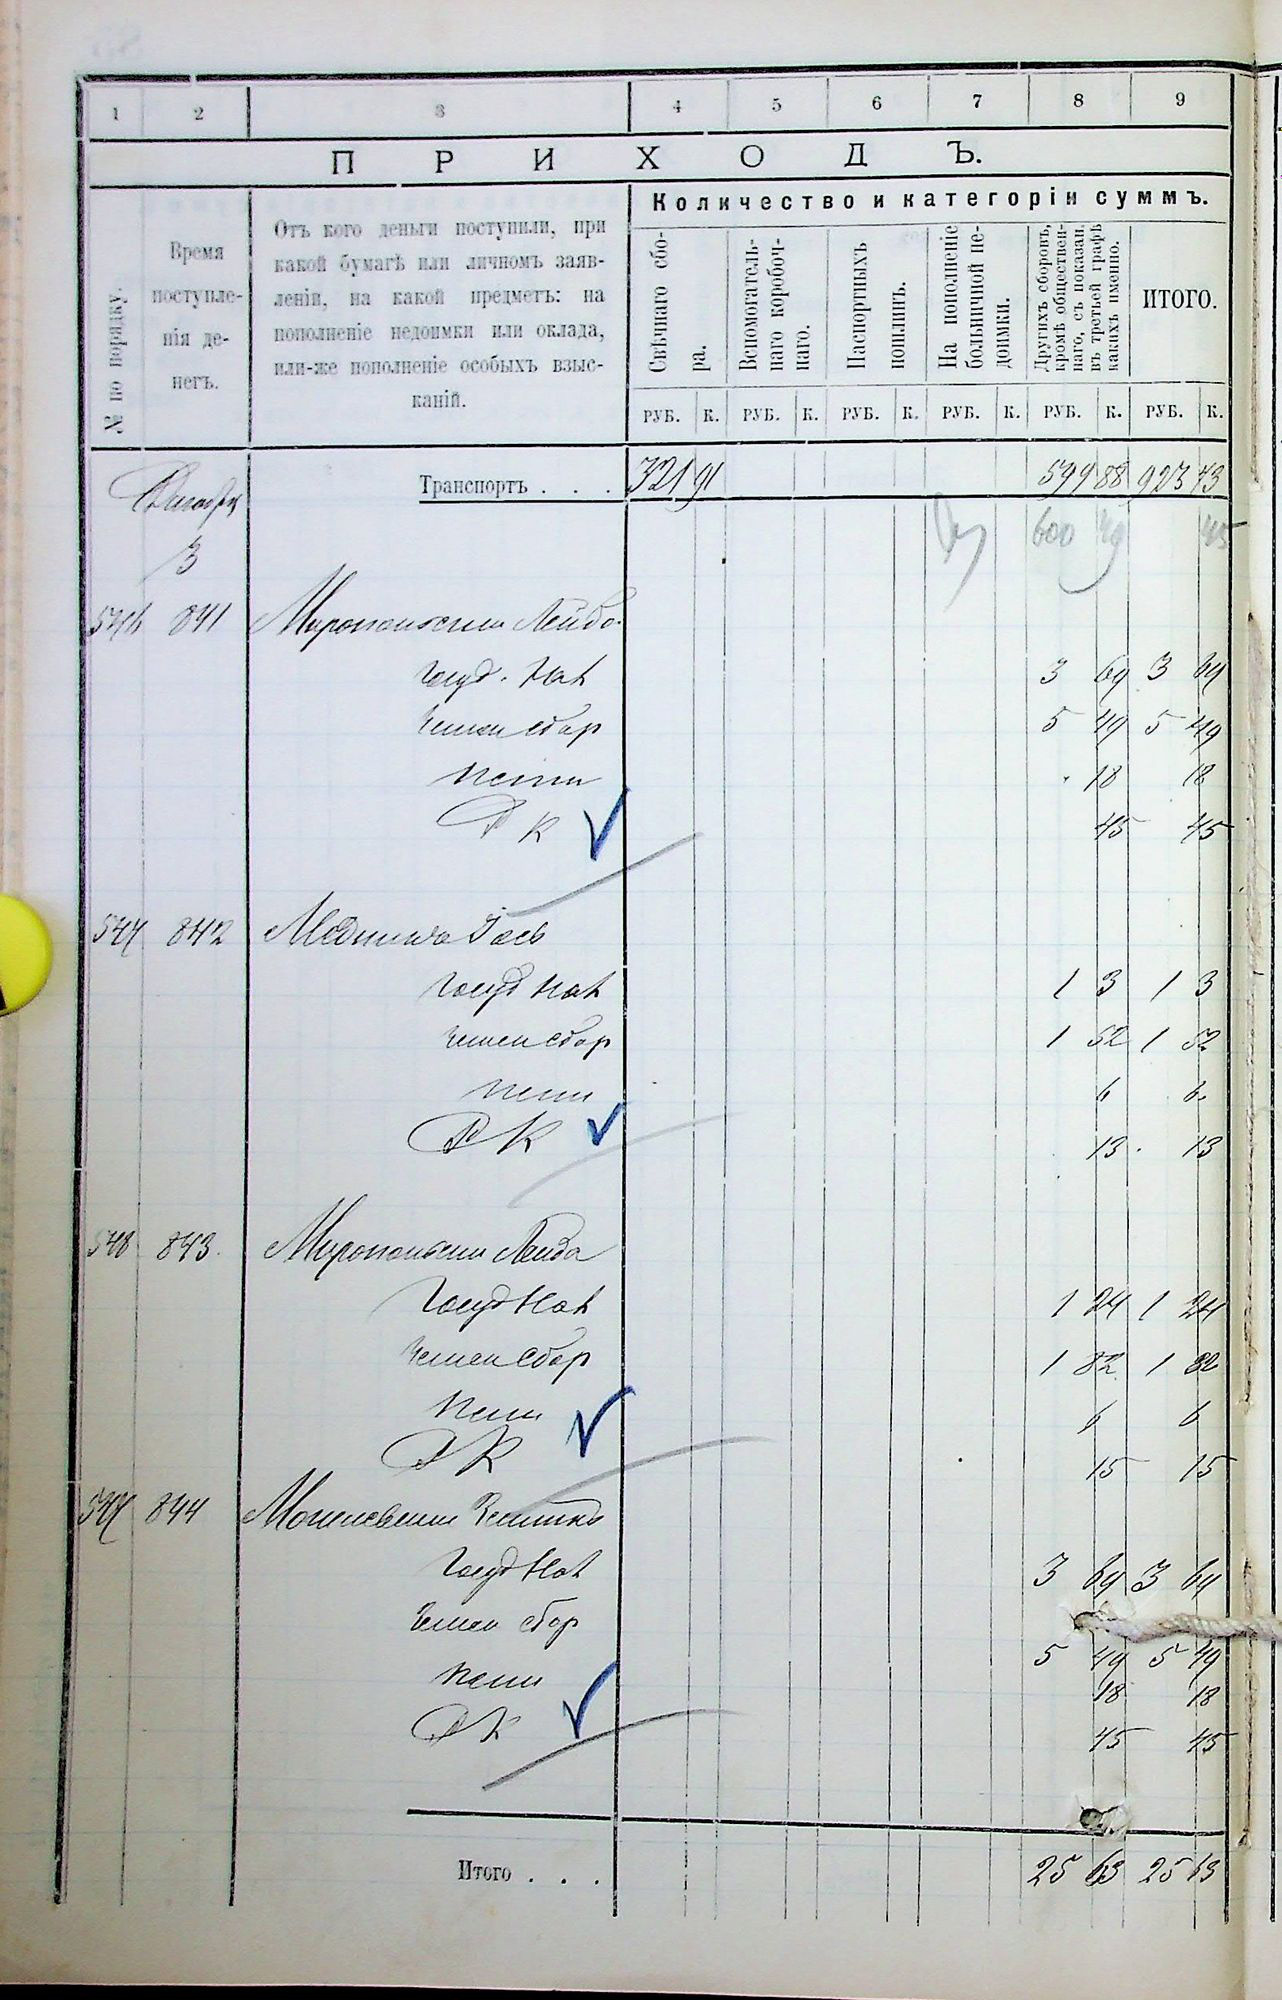 1 2 3 4 5 6 7 8 9
ПРИХОДЪ.
Количество и категоріи суммъ.
№ по порядку.
Время поступле-
нія де-
негъ.
Отъ кого деньги поступили, при
какой бумагѣ или личномъ заяв-
леніи, на какой предметъ: на
пополненіе недоимки или оклада,
или-же пополненіе особыхъ взыс-
каній.
Свѣчнаго сбо-
ра.
Вспомогатель-
наго коробоч-
наго.
Паспортныхъ
пошлинъ.
На пополненіе
больничной не-
доимки.
Другихъ сборовъ,
кромѣ обществен-
наго, съ показан.
въ третьей графѣ
какихъ именно.
ИТОГО.
РУБ. К. РУБ. К. РУБ. К. РУБ. К. РУБ. К. РУБ. К.
Транспортъ . . . 321 91 599 88 923 43
600 49 45
3
546 841 Миропольскій Лейба
Госуд. Нал 3 69 3 69
Земск сбор 5 49 5 49
Пени 18 18
Р К 45 45
842
Госуд Нал 1 3 1 3
Земск сбор 1 52 1 52
Пени 6 6
Р К 13 13
548 843 Миропольскій Лейба
Госуд Нал 1 24 1 24
Земск Сбор 1 82 1 82
Пени 6 6
Р К 15 15
844
Госуд Нал 3 69 3 69
Земск сбор 5 49 5 49
Пени 18 18
Р К 45 45
Итого . . . 25 63 25 63